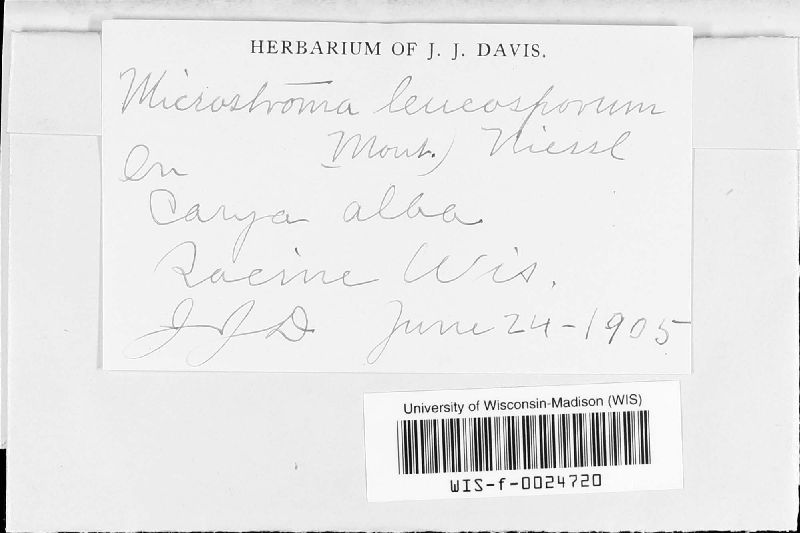 HERBARIUM OF J. J. DAVIS.
Microstroma leucosporum
Mont.) Niessl
On
Carya alba
Racine Wis.
JJD June 24-1905
University of Wisconsin-Madison (WIS)
WIS-f-0024720